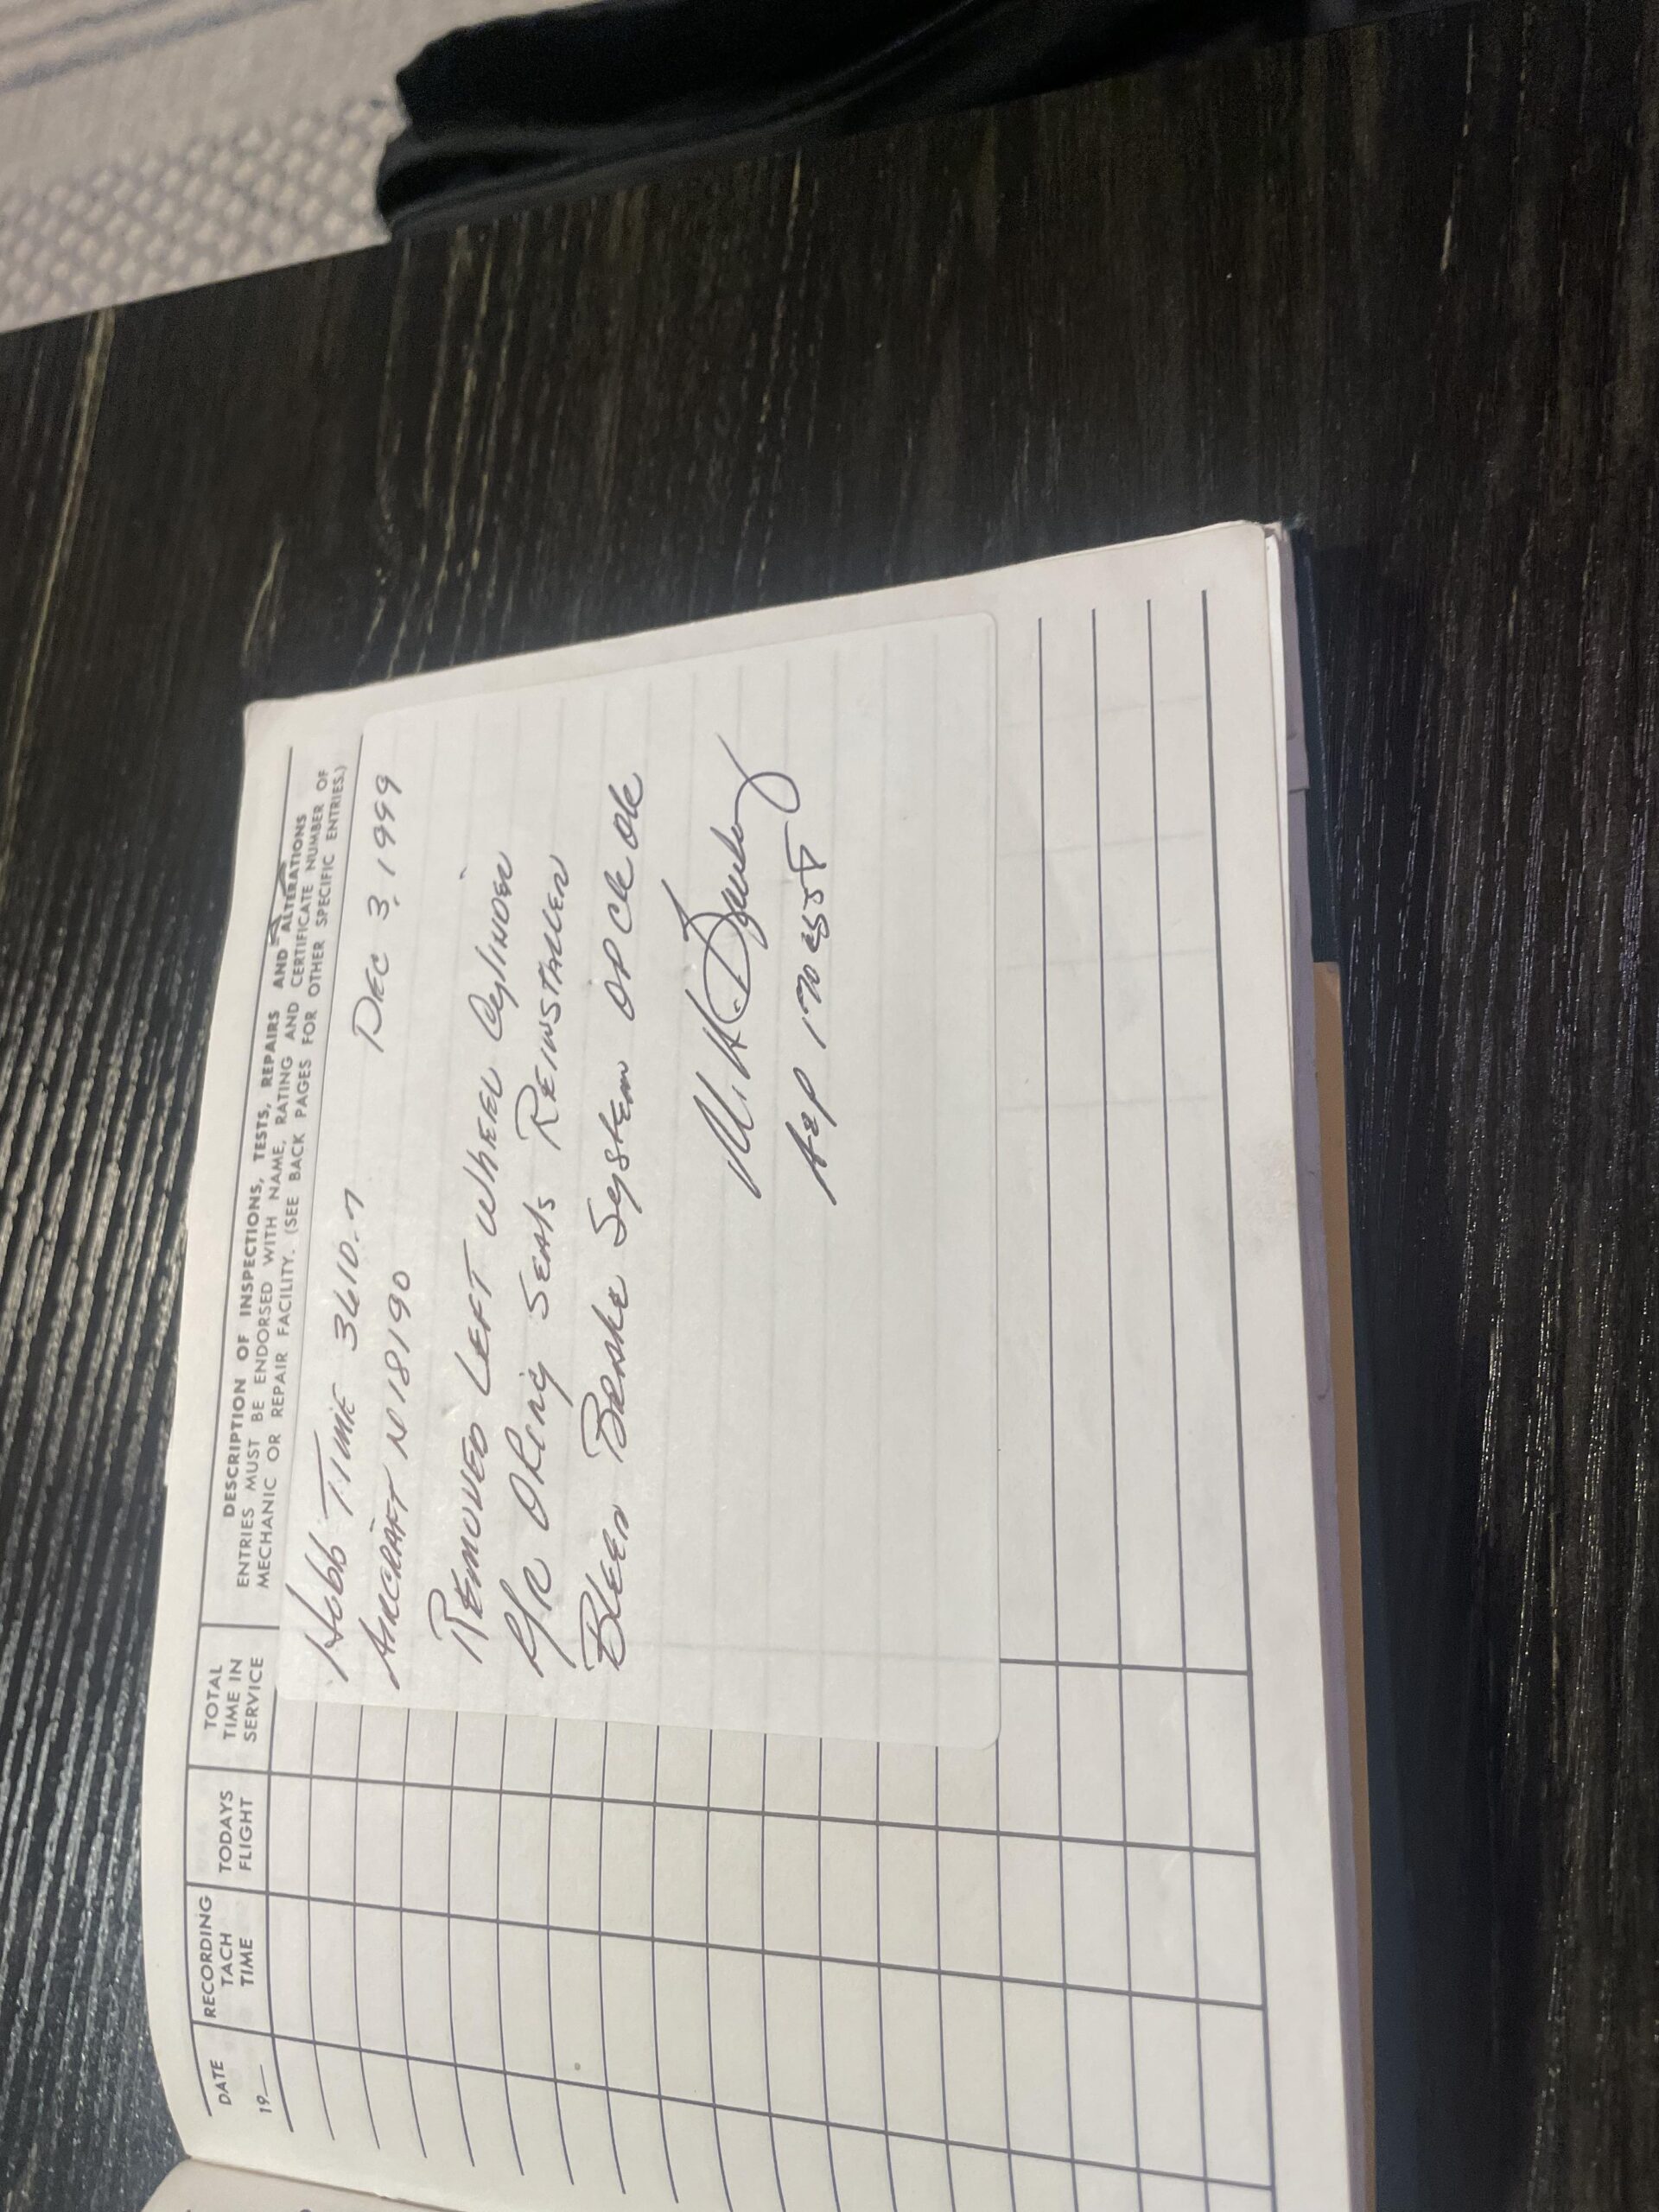 DATE
19
RECORDING
TACH
TIME
TODAYS
FLIGHT
TOTAL
TIME IN
SERVICE
DESCRIPTION OF INSPECTIONS, TESTS, REPAIRS AND ALTERATIONS
ENTRIES MUST BE ENDORSED WITH NAME, RATING AND CERTIFICATE NUMBER OF
MECHANIC OR REPAIR FACILITY. (SEE BACK PAGES FOR OTHER SPECIFIC ENTRIES.)
Hobb TIME 3610.7 DEC 3, 1999
AIRCRAFT N18190
REMOVED LEFT WHEEL Cylinder
R/R ORing SEAls REINSTALLED
BLEED BRAKE System OP CK OK
A&P